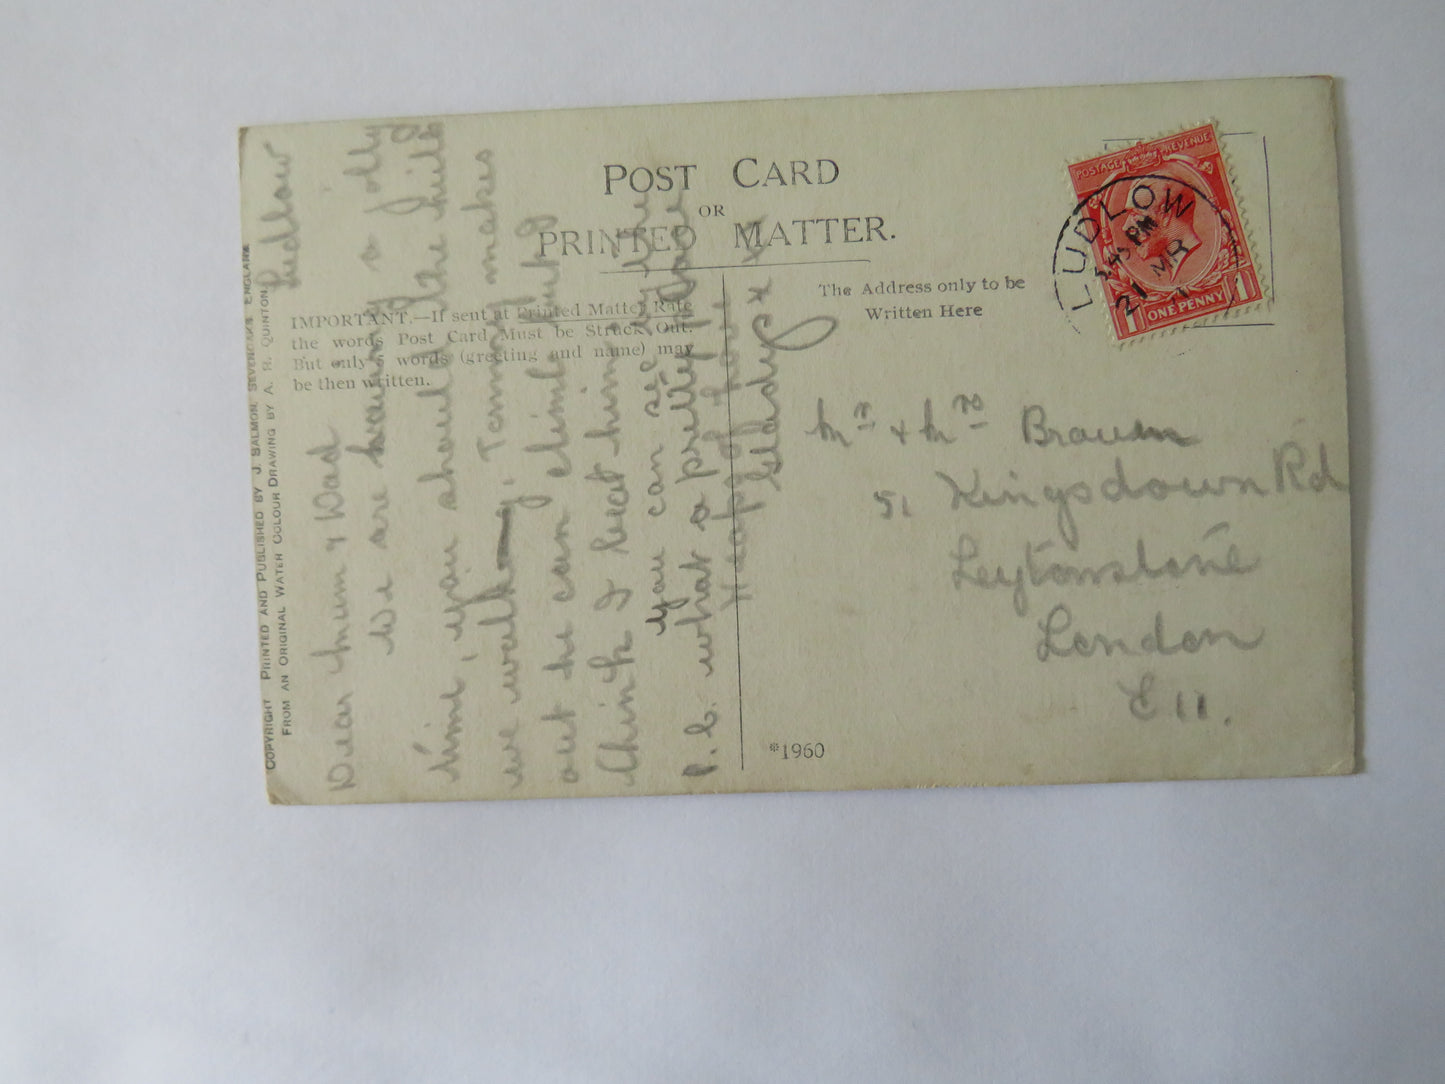 POST CARD
OR
PRINTED MATTER.
IMPORTANT.—If sent at Printed Matter Rate
the words Post Card Must be Struck Out.
But only 5 words (greeting and name) may
be then written.
The Address only to be
Written Here
COPYRIGHT PRINTED AND PUBLISHED BY J. SALMON, SEVENOAKS ENGLAND
FROM AN ORIGINAL WATER COLOUR DRAWING BY A. R. QUINTON
Ludlow
Dear Mum & Dad
We are having a jolly
time, you should the hills
we walk. Tommy makes
out he can climb but
think I beat him
you can see by the
P.C. what a pretty place
Heaps of love
Gladys x x
Mr & Mrs Braum
51 Kingsdown Rd
Leytonstone
London
E 11.
*1960
POSTAGE REVENUE
1 ONE PENNY 1
LUDLOW
3.45 PM
21 MR